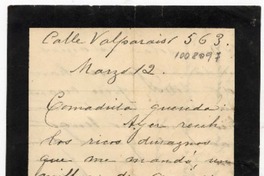 Calle Valparaiso 563.
1008097
Marzo 12.
Comadrita querida
Ayer recibí
los ricos duraznos
que me mandó, un